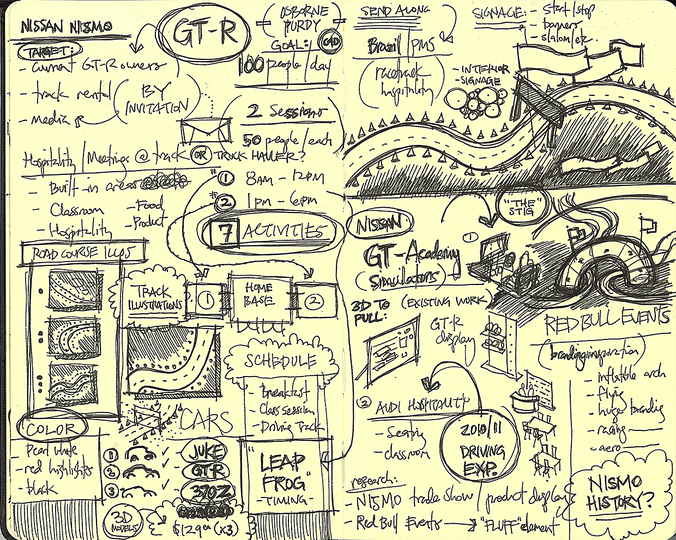 NISSAN NISMO
GT-R
TARGET:
- current GT-R owners
- track rental
- media
BY INVITATION
OSBORNE PURDY
GOAL:
100 people/day
2 Sessions
50 people/each
Hospitality/Meetings @ track OR TRUCK HAULER?
- Built-in areas
- Classroom
- Hospitality
- Food
- Product
1 8AM - 12PM
2 1PM - 6PM
7 ACTIVITIES
ROAD COURSE ILLUS
TRACK ILLUSTRATIONS
1
HOME BASE
2
SCHEDULE
- Breakfast
- Class session
- Driving Track
"LEAP FROG"
- TIMING -
COLOR
- Pearl white
- red highlights
- black
CARS
1 JUKE
2 GTR
3 370Z
3D MODELS
$129.00 (x3)
SEND ALONG
Brazil PMS
(racetrack hospitality)
- INTERIOR SIGNAGE
SIGNAGE:
- start/stop
- banners
- slalom/etc
NISSAN
"THE" STIG
GT-Academy
(Simulators)
1
3D TO PULL:
(EXISTING WORK
GT-R display
2 AUDI HOSPITALITY
- Seating
- classroom
2010/11 DRIVING EXP.
RED BULL EVENTS
(branding inspiration)
- inflatible arch
- flying
- huge branding
- racing
- aero
research:
- NISMO trade show/product display
- Red Bull Events → "FLUFF" element
NISMO HISTORY?